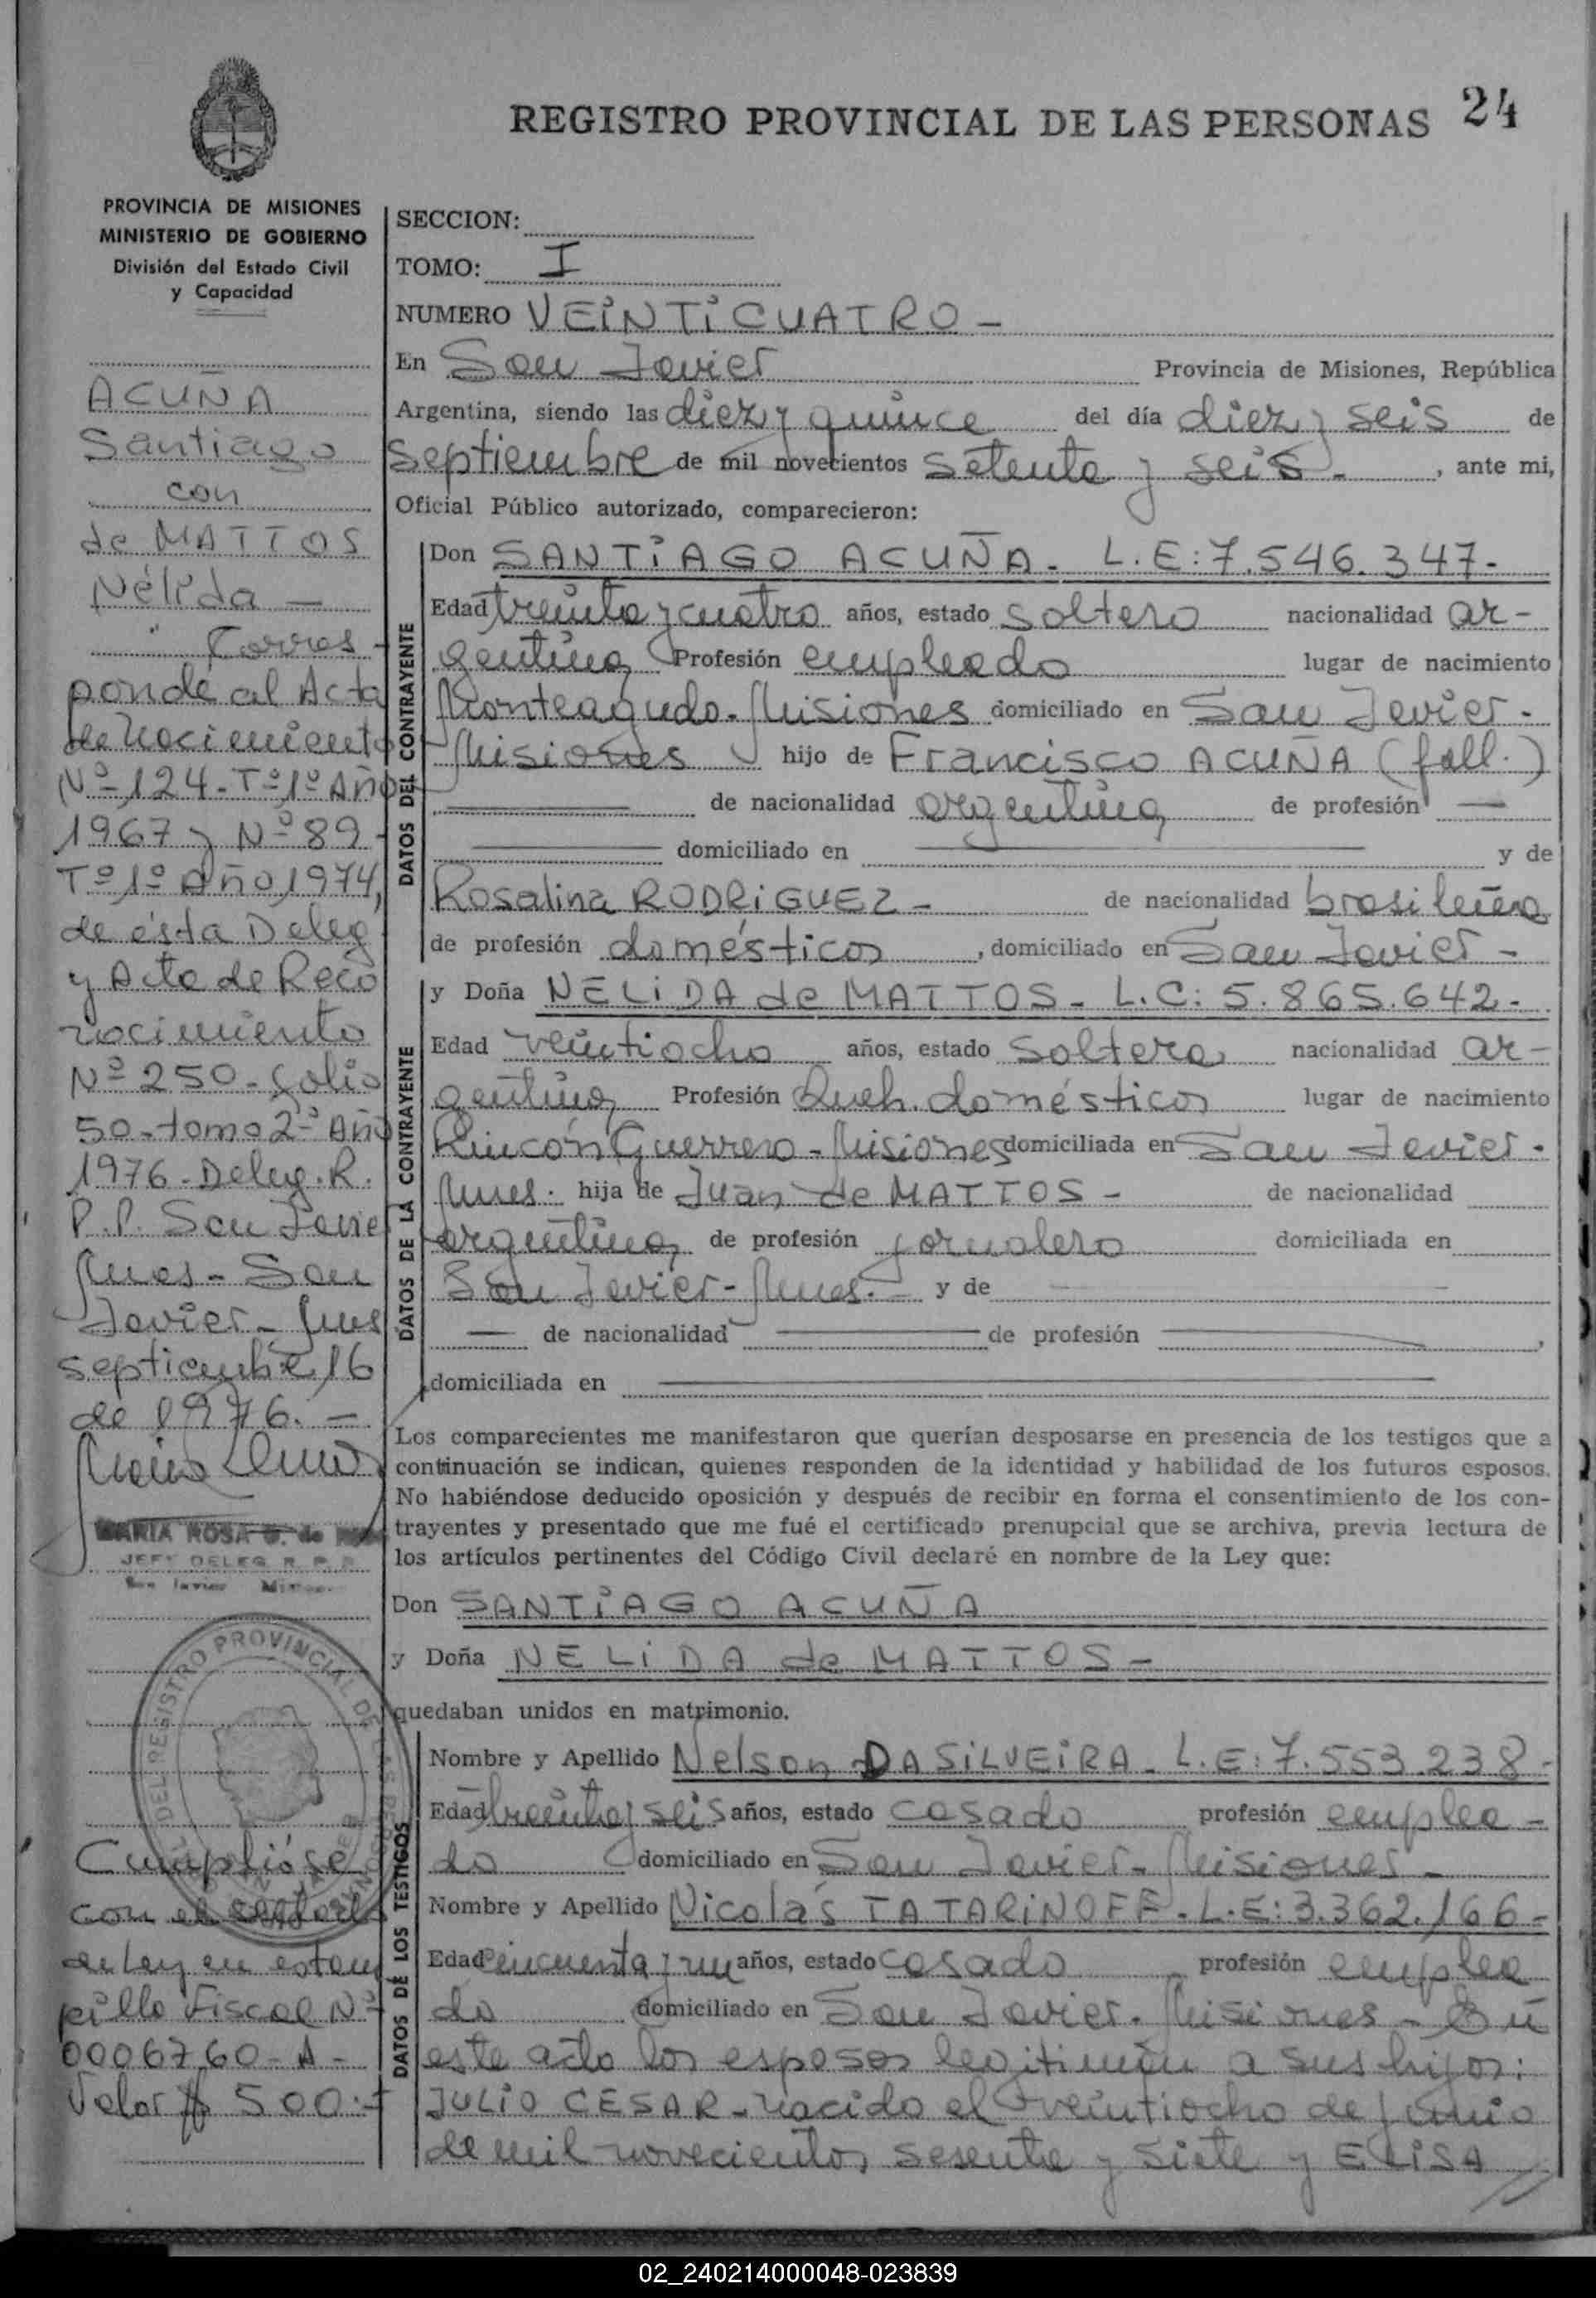 REGISTRO PROVINCIAL DE LAS PERSONAS 24
PROVINCIA DE MISIONES
MINISTERIO DE GOBIERNO
División del Estado Civil
y Capacidad
ACUÑA
Santiago
con
de MATTOS
Nélida -
Corres-
ponde al Acta
de Nacimiento
Nº 124 - Tº 1º Año
1967 y Nº 89 -
Tº 1º Año 1974,
de ésta Deleg
y Acta de Reco
nocimiento
Nº 250 - folio
50 - tomo 2º Año
1976 - Deleg. R.
P.P. San Javie
Mnes - San
Javier - Mnes
septiembre 16
de 1976. -
MARIA ROSA G. de
JEFE DELEG R. P. P.
San Javier Misiones
DEL REGISTRO PROVINCIAL DE
Cumplióse
con el
de Ley en estam
pillo Fiscal Nº
0006760 - A -
Valor $ 500. -
SECCION:
TOMO: I
NUMERO VEINTICUATRO -
En San Javier Provincia de Misiones, República
Argentina, siendo las diez y quince del día diez y seis de
Septiembre de mil novecientos setenta y seis - , ante mi,
Oficial Público autorizado, comparecieron:
DATOS DEL CONTRAYENTE
Don SANTIAGO ACUÑA - L.E: 7.546.347 -
Edad treinta y cuatro años, estado soltero nacionalidad ar-
gentina Profesión empleado lugar de nacimiento
Monteagudo - Misiones domiciliado en San Javier -
Misiones hijo de Francisco ACUÑA (fall.)
de nacionalidad argentina de profesión
domiciliado en y de
Rosalina RODRIGUEZ - de nacionalidad brasileña
de profesión domésticos , domiciliado en San Javier -
DATOS DE LA CONTRAYENTE
y Doña NELIDA de MATTOS - L.C: 5.865.642 -
Edad veintiocho años, estado soltera nacionalidad ar-
gentina Profesión Queh. domésticos lugar de nacimiento
Rincón Guerrero - Misiones domiciliada en San Javier -
Mnes. hija de Juan de MATTOS - de nacionalidad
argentina de profesión jornalero domiciliada en
San Javier - Mnes. - y de
de nacionalidad de profesión ,
domiciliada en
Los comparecientes me manifestaron que querían desposarse en presencia de los testigos que a
continuación se indican, quienes responden de la identidad y habilidad de los futuros esposos.
No habiéndose deducido oposición y después de recibir en forma el consentimiento de los con-
trayentes y presentado que me fué el certificado prenupcial que se archiva, previa lectura de
los artículos pertinentes del Código Civil declaré en nombre de la Ley que:
Don SANTIAGO ACUÑA
y Doña NELIDA de MATTOS -
quedaban unidos en matrimonio.
DATOS DE LOS TESTIGOS
Nombre y Apellido Nelson DASILVEIRA - L.E: 7.553.238 -
Edad treinta y seis años, estado casado profesión emplea-
do domiciliado en San Javier - Misiones -
Nombre y Apellido Nicolás TATARINOFF - L.E: 3.362.166 -
Edad cincuenta y un años, estado casado profesión emplea
do domiciliado en San Javier - Misiones - En
este acto los esposos legitiman a sus hijos:
JULIO CESAR - nacido el veintiocho de junio
de mil novecientos sesenta y siete y ELISA
02_240214000048-023839